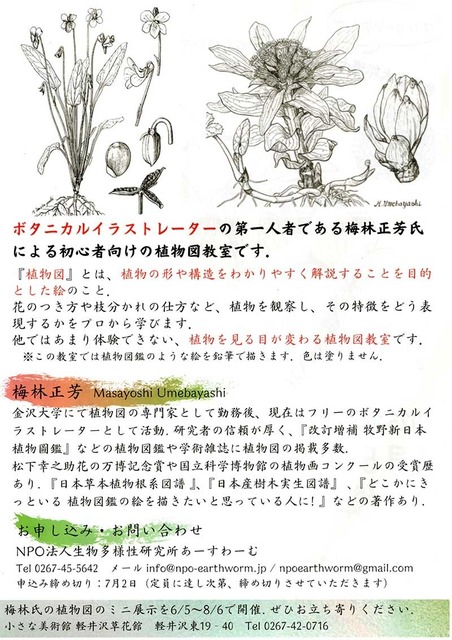 M. Umebayashi
ボタニカルイラストレーターの第一人者である梅林正芳氏
による初心者向けの植物図教室です.
『植物図』とは、植物の形や構造をわかりやすく解説することを目的
とした絵のこと.
花のつき方や枝分かれの仕方など、植物を観察し、その特徴をどう表
現するかをプロから学びます.
他ではあまり体験できない、植物を見る目が変わる植物図教室です.
※この教室では植物図鑑のような絵を鉛筆で描きます. 色は塗りません.
梅林正芳 Masayoshi Umebayashi
金沢大学にて植物図の専門家として勤務後、現在はフリーのボタニカルイ
ラストレーターとして活動. 研究者の信頼が厚く、『改訂増補 牧野新日本
植物圖鑑』などの植物図鑑や学術雑誌に植物図の掲載多数.
松下幸之助花の万博記念賞や国立科学博物館の植物画コンクールの受賞歴
あり. 『日本草本植物根系図譜』、『日本産樹木実生図譜』、『どこかにき
っといる 植物図鑑の絵を描きたいと思っている人に!』などの著作あり.
お申し込み・お問い合わせ
NPO法人生物多様性研究所あーすわーむ
Tel 0267-45-5642 メール info@npo-earthworm.jp / npoearthworm@gmail.com
申込み締め切り：7月2日（定員に達し次第、締め切りさせていただきます）
梅林氏の植物図のミニ展示を6/5〜8/6で開催. ぜひお立ち寄りください.
小さな美術館 軽井沢草花館 軽井沢東19‐40 Tel 0267-42-0716